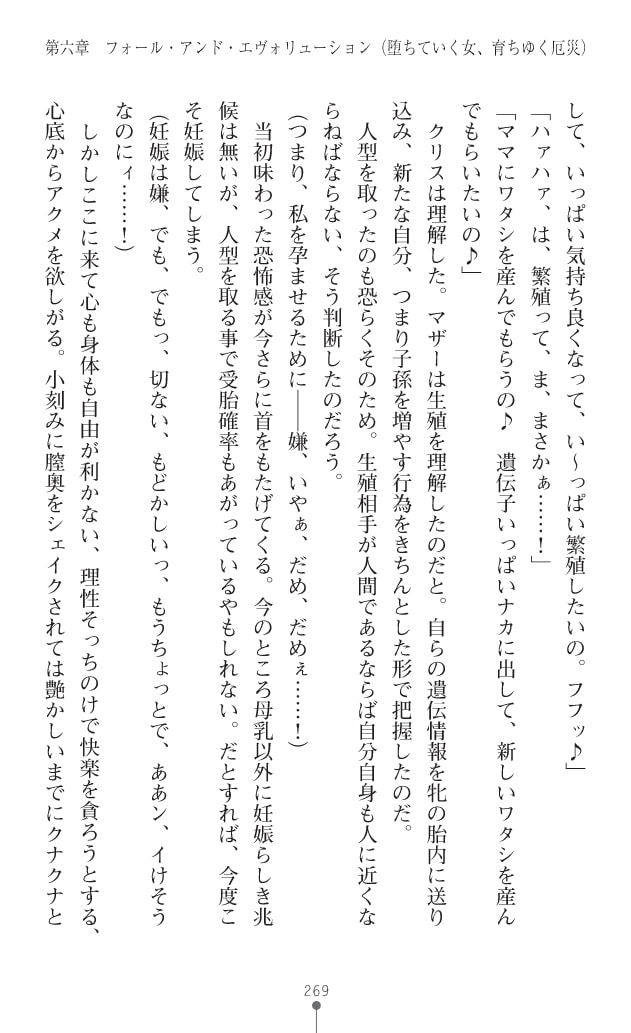 第六章　フォール・アンド・エヴォリューション（堕ちていく女、育ちゆく厄災）
して、いっぱい気持ち良くなって、い～っぱい繁殖したいの。フフッ♪」
「ハァハァ、は、繁殖って、ま、まさかぁ……！」
「ママにワタシを産んでもらうの♪　遺伝子いっぱいナカに出して、新しいワタシを産ん
でもらいたいの♪」
　クリスは理解した。マザーは生殖を理解したのだと。自らの遺伝情報を牝の胎内に送り
込み、新たな自分、つまり子孫を増やす行為をきちんとした形で把握したのだ。
　人型を取ったのも恐らくそのため。生殖相手が人間であるならば自分自身も人に近くな
らねばならない、そう判断したのだろう。
（つまり、私を孕ませるために――嫌、いやぁ、だめ、だめぇ……！）
　当初味わった恐怖感が今さらに首をもたげてくる。今のところ母乳以外に妊娠らしき兆
候は無いが、人型を取る事で受胎確率もあがっているやもしれない。だとすれば、今度こ
そ妊娠してしまう。
（妊娠は嫌、でも、でもっ、切ない、もどかしいっ、もうちょっとで、ああン、イけそう
なのにィ……！）
　しかしここに来て心も身体も自由が利かない、理性そっちのけで快楽を貪ろうとする、
心底からアクメを欲しがる。小刻みに膣奥をシェイクされては艶かしいまでにクナクナと
269